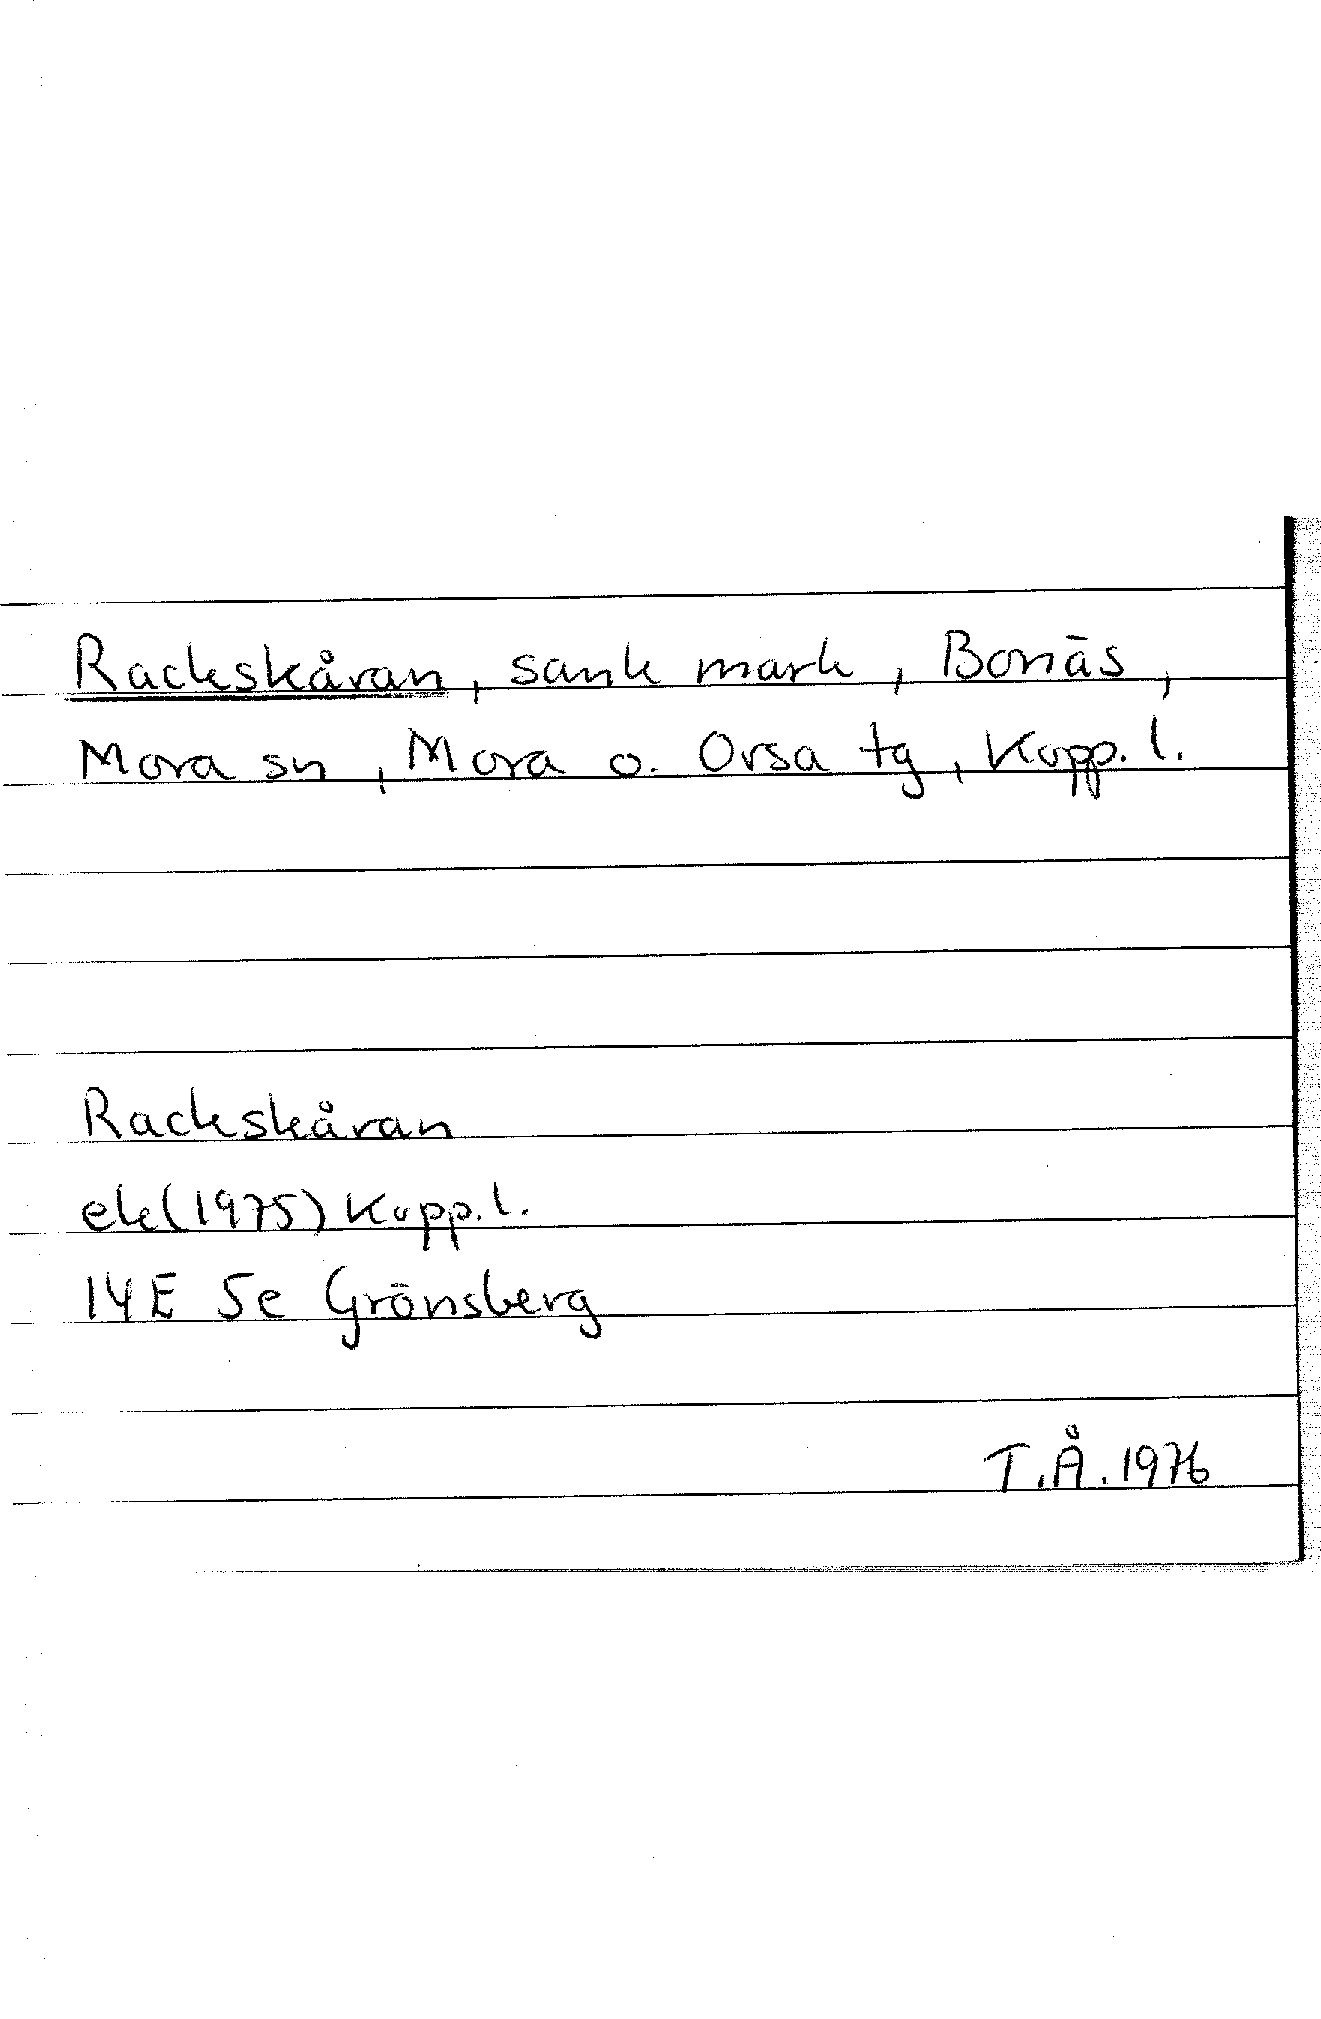 Rackskåran, sank mark, Bonäs,
Mora sn, Mora o. Orsa tg, Kopp. l.
Rackskåran
ek(1975) Kopp. l.
14E 5e Grönsberg
T.Å. 1976